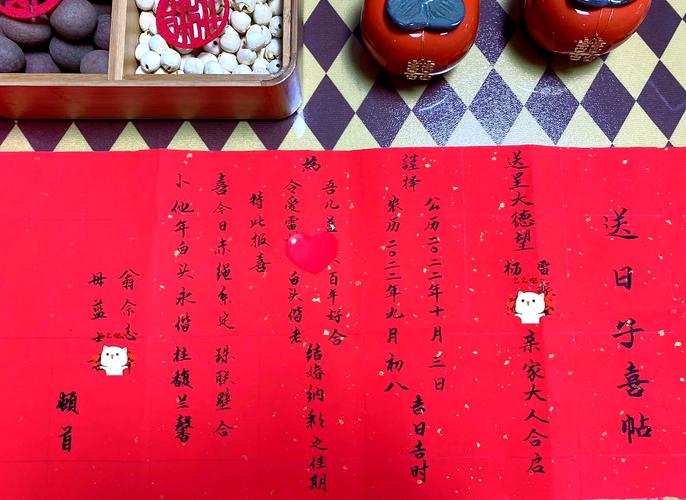 送日子喜帖
送呈大德望
雷
杨
亲家大人合启
謹择
公历二〇二二年十月三日
农历二〇二二年九月初八
吉日吉时
為
吾儿蓝 百年好合
令爱雷 白头偕老
结婚纳彩之佳期
特此报喜
喜今日赤绳系定 珠联璧合
卜他年白头永偕 桂馥兰馨
翁佘志
母蓝士
頓首
囍
囍